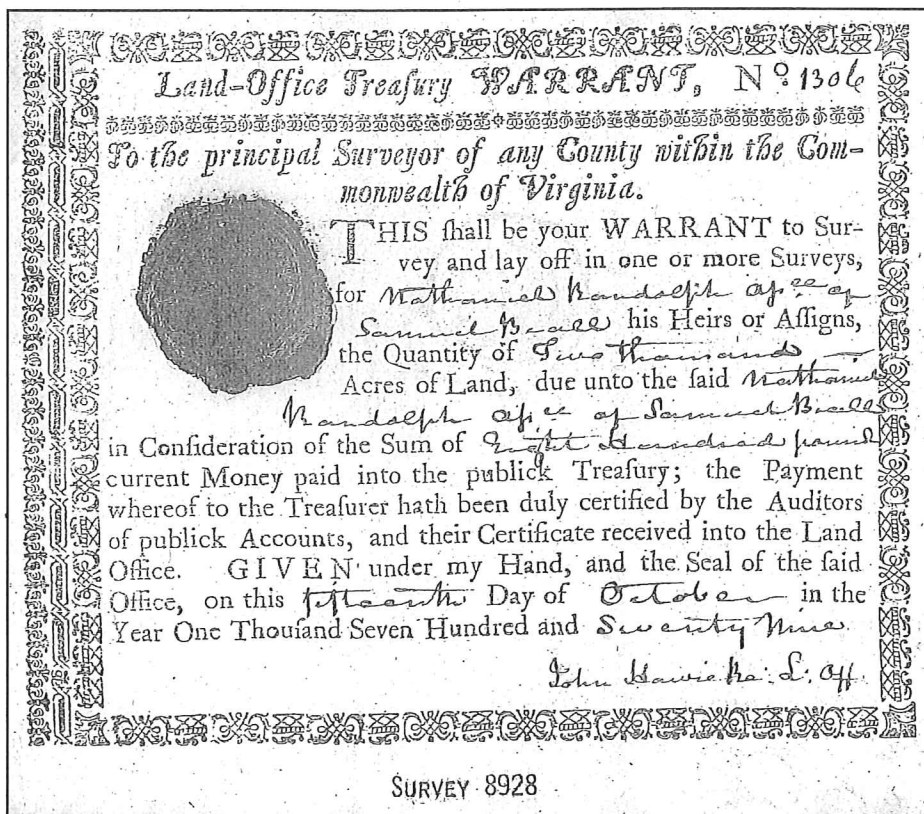 Land-Office Treaſury WARRANT, Nº 1306
To the principal Surveyor of any County within the Com-
monwealth of Virginia.
THIS ſhall be your WARRANT to Sur-
vey and lay off in one or more Surveys,
for Nathaniel Randolph aſsee of
Samuel Beall his Heirs or Aſſigns,
the Quantity of Two thousand —
Acres of Land, due unto the ſaid Nathaniel
Randolph aſsee of Samuel Beall
in Conſideration of the Sum of Eight Hundred pounds
current Money paid into the publick Treaſury; the Payment
whereof to the Treaſurer hath been duly certified by the Auditors
of publick Accounts, and their Certificate received into the Land
Office. GIVEN under my Hand, and the Seal of the ſaid
Office, on this fifteenth Day of October in the
Year One Thouſand Seven Hundred and Seventy Nine
John Hawie Re: L: Off
SURVEY 8928